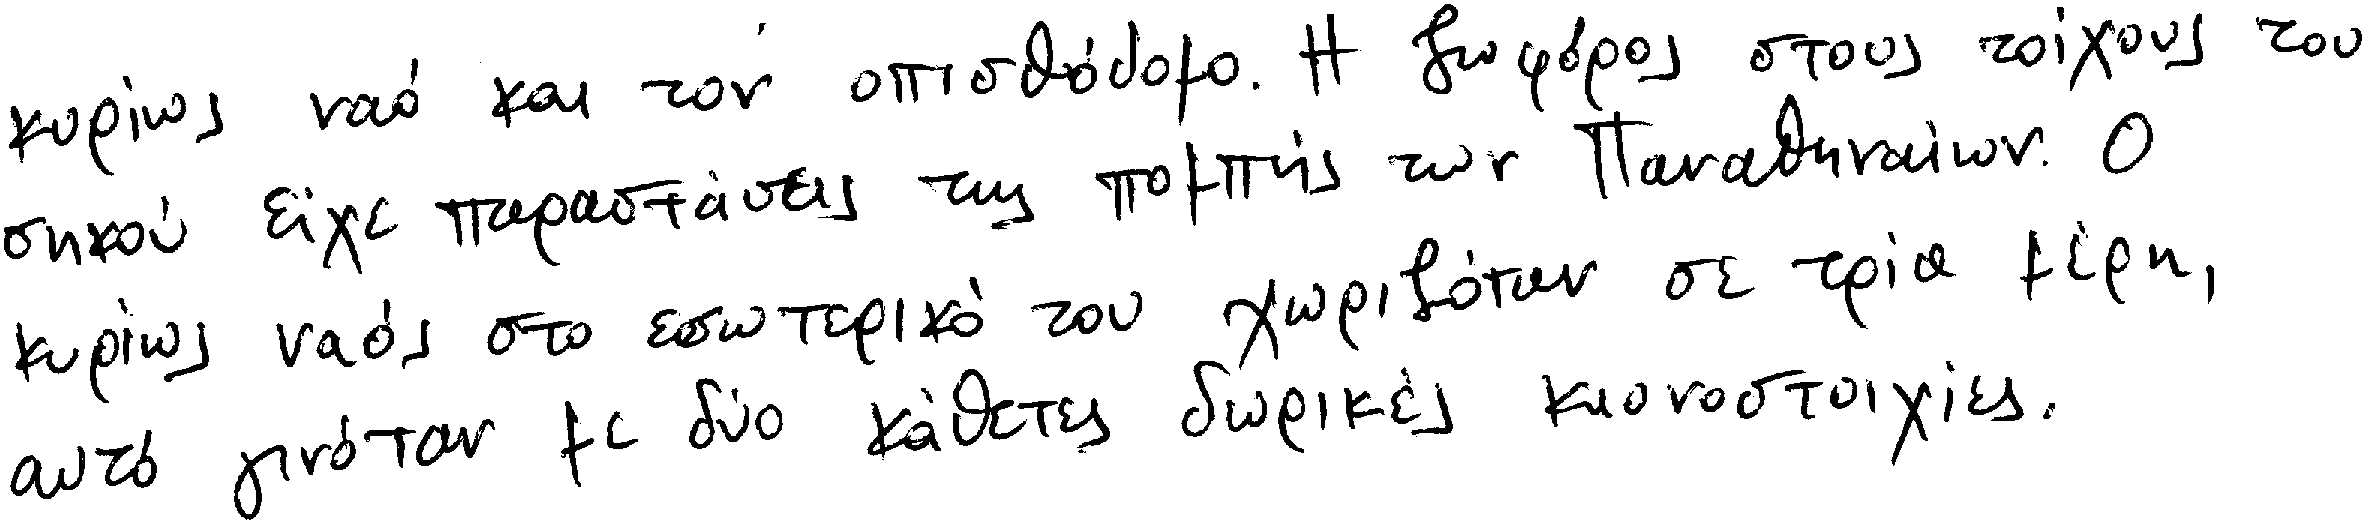 κυρίως ναό και τον οπισθόδομο. Η ζωφόρος στους τοίχους του
σηκού είχε παραστάσεις της πομπής των Παναθηναίων. Ο
κυρίως ναός στο εσωτερικό του χωριζόταν σε τρία μέρη,
αυτό γινόταν με δύο κάθετες δωρικές κιονοστοιχίες.